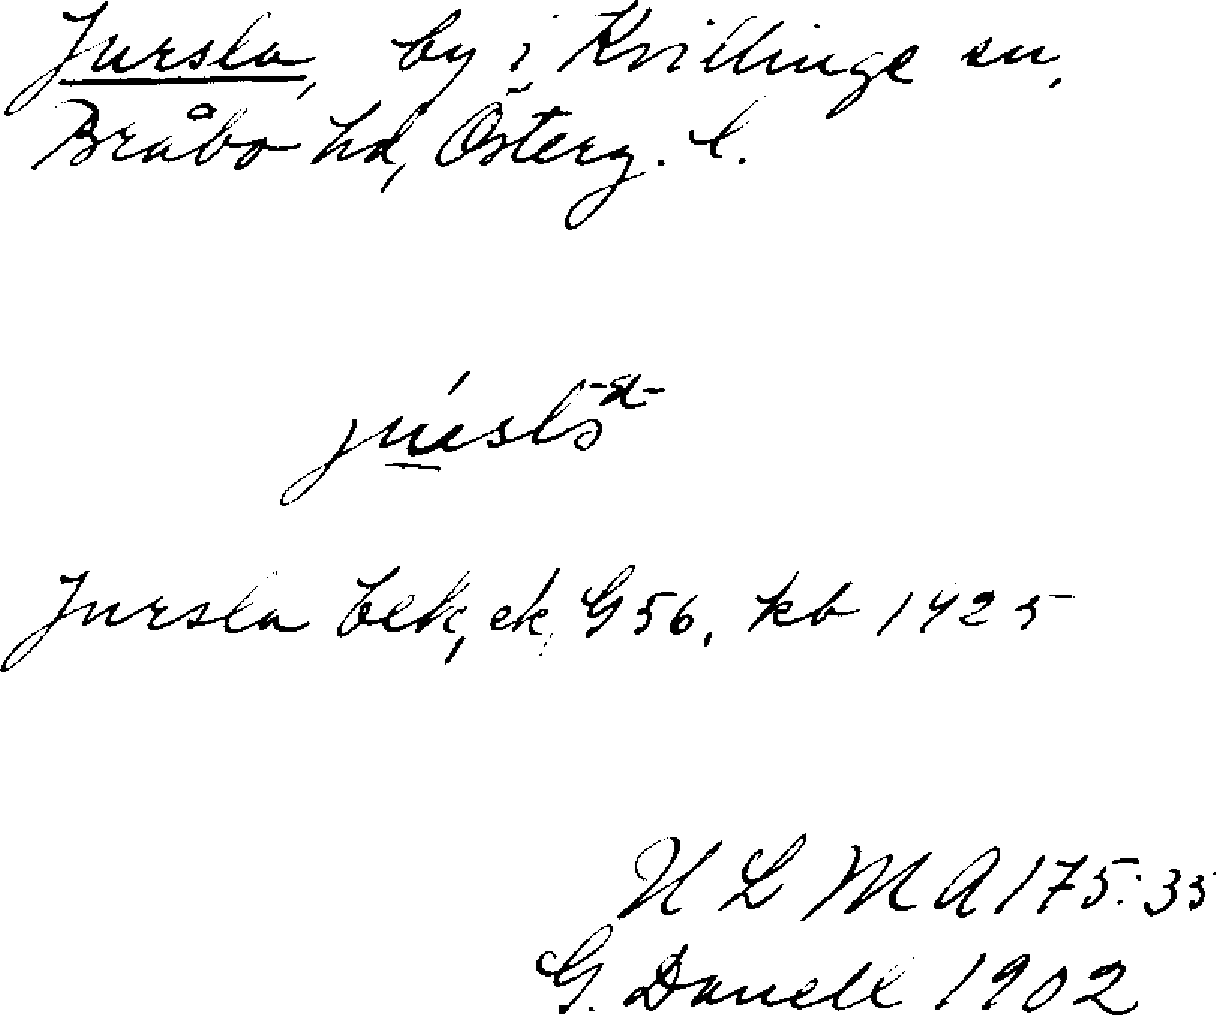 Jursla, by i Kvillinge sn,
Bråbo hd, Österg. l.
Jursla bek, ek, G56, kb 1425
ULMA 175:35
G. Danell 1902